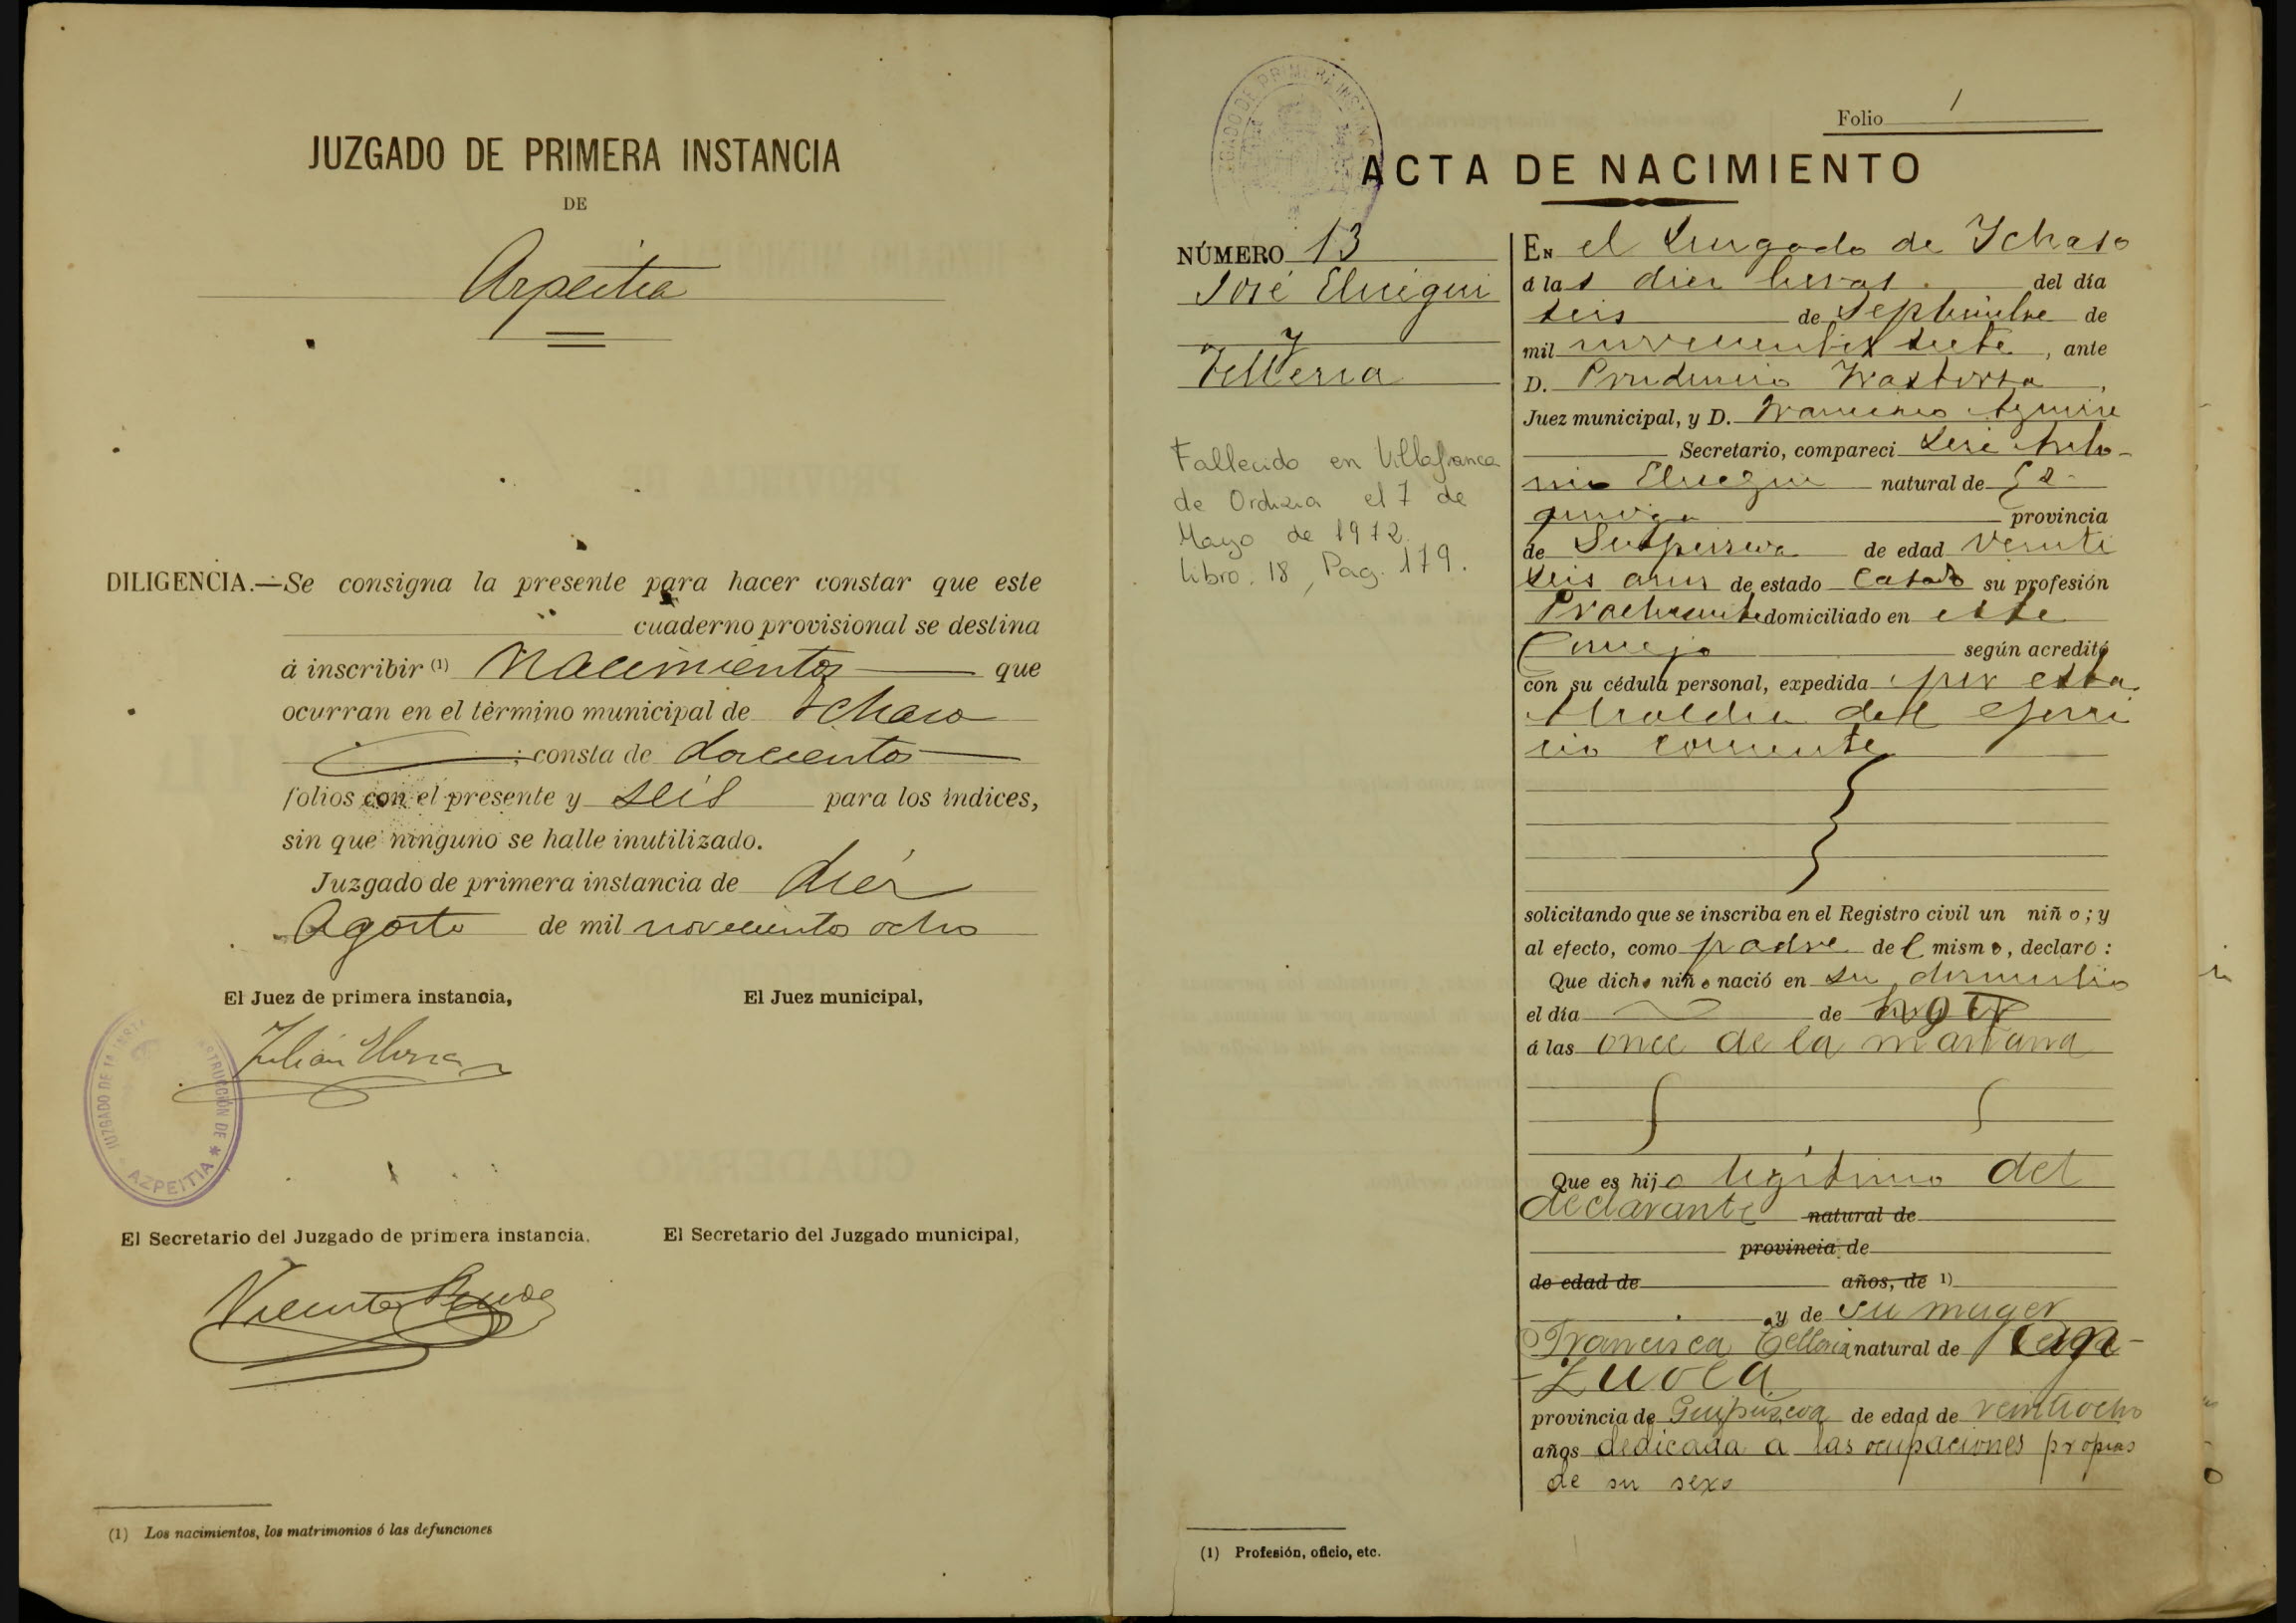 JUZGADO DE PRIMERA INSTANCIA
DE
Azpeitia
DILIGENCIA.—Se consigna la presente para hacer constar que este
cuaderno provisional se destina
á inscribir (1) Nacimientos que
ocurran en el término municipal de Ichaso
; consta de doscientos
folios con el presente y seis para los índices,
sin que ninguno se halle inutilizado.
Juzgado de primera instancia de diez
Agosto de mil novecientos ocho
El Juez de primera instancia,
El Juez municipal,
Julián
JUZGADO DE INSTRUCCIÓN DE * AZPEITIA
El Secretario del Juzgado de primera instancia,
El Secretario del Juzgado municipal,
Vicente
(1) Los nacimientos, los matrimonios ó las defunciones
JUZGADO DE PRIMERA INSTANCIA
Folio 1
ACTA DE NACIMIENTO
NÚMERO 13
José Elucegui
y
Telleria
Fallecido en Villafranca
de Ordizia el 7 de
Mayo de 1972.
libro. 18, Pag. 179.
EN el Juzgado de Ichaso
á las diez horas del día
seis de Septiembre de
mil novecientos siete, ante
D. Prudencio,
Juez municipal, y D. Francisco Aguirre
Secretario, compareci José Anto-
nio Elucegui natural de
provincia
de Guipuzcoa de edad veinti
seis años de estado Casado su profesión
domiciliado en este
Concejo según acreditó
con su cédula personal, expedida por esta
Alcaldia del ejerci
cio corriente
solicitando que se inscriba en el Registro civil un niño; y
al efecto, como padre del mismo, declaro:
Que dicho niño nació en su domicilio
el día de hoy
á las once de la mañana
Que es hijo legítimo del
declarante natural de
provincia de
de edad de años, de 1)
y de su muger
Francisca Telleria natural de Ean-
zuola
provincia de Guipúzcoa de edad de veintiocho
años dedicada a las ocupaciones propias
de su sexo
(1) Profesión, oficio, etc.